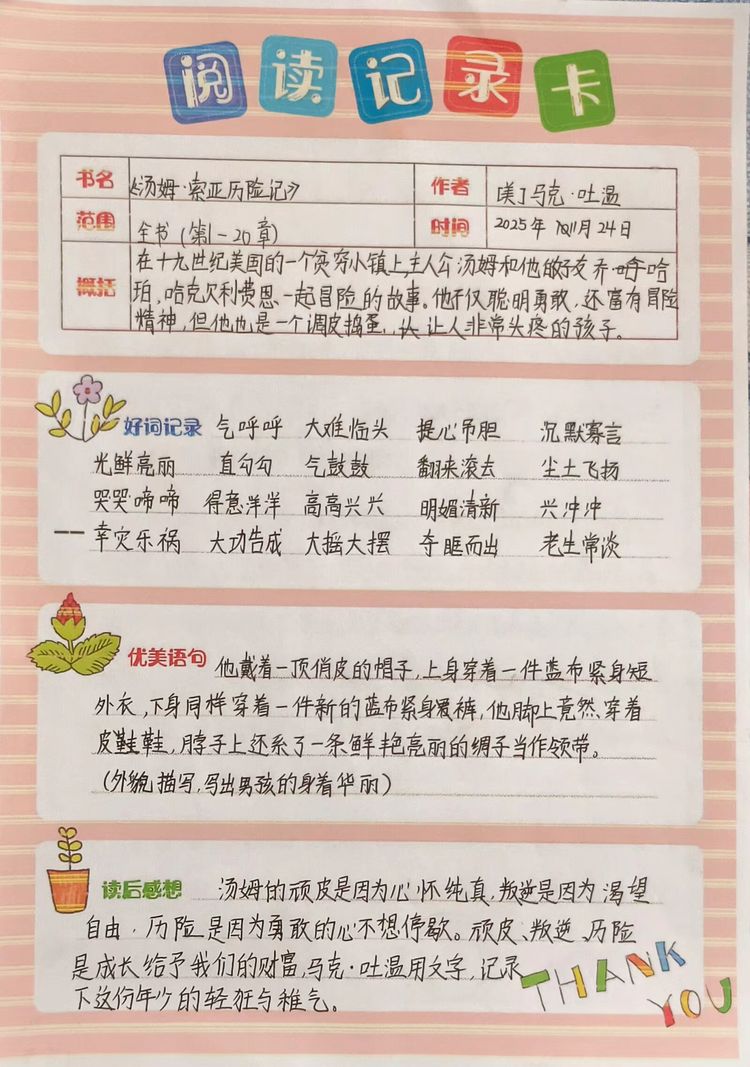 阅读记录卡
书名 《汤姆·索亚历险记》 作者 [美]马克·吐温
范围 全书(第1-20章) 时间 2025年11月24日
概括 在十九世纪美国的一个贫穷小镇上,主人公汤姆和他的好友乔·哈
珀,哈克贝利费恩一起冒险的故事。他不仅聪明勇敢,还富有冒险
精神,但他也是一个调皮捣蛋,让人非常头疼的孩子。
好词记录 气呼呼 大难临头 提心吊胆 沉默寡言
光鲜亮丽 直勾勾 气鼓鼓 翻来滚去 尘土飞扬
哭哭·啼啼 得意洋洋 高高兴兴 明媚清新 兴冲冲
幸灾乐祸 大功告成 大摇大摆 夺眶而出 老生常谈
优美语句 他戴着一顶俏皮的帽子,上身穿着一件蓝布紧身短
外衣,下身同样穿着一件新的蓝布紧身裤,他脚上竟然穿着
皮鞋,脖子上还系了一条鲜艳亮丽的绸子当作领带。
(外貌描写,写出男孩的身着华丽)
读后感想 汤姆的顽皮是因为心怀纯真,叛逆是因为渴望
自由,历险是因为勇敢的心不想停歇。顽皮、叛逆、历险
是成长给予我们的财富,马克·吐温用文字,记录
下这份年少的轻狂与稚气。
THANK
YOU